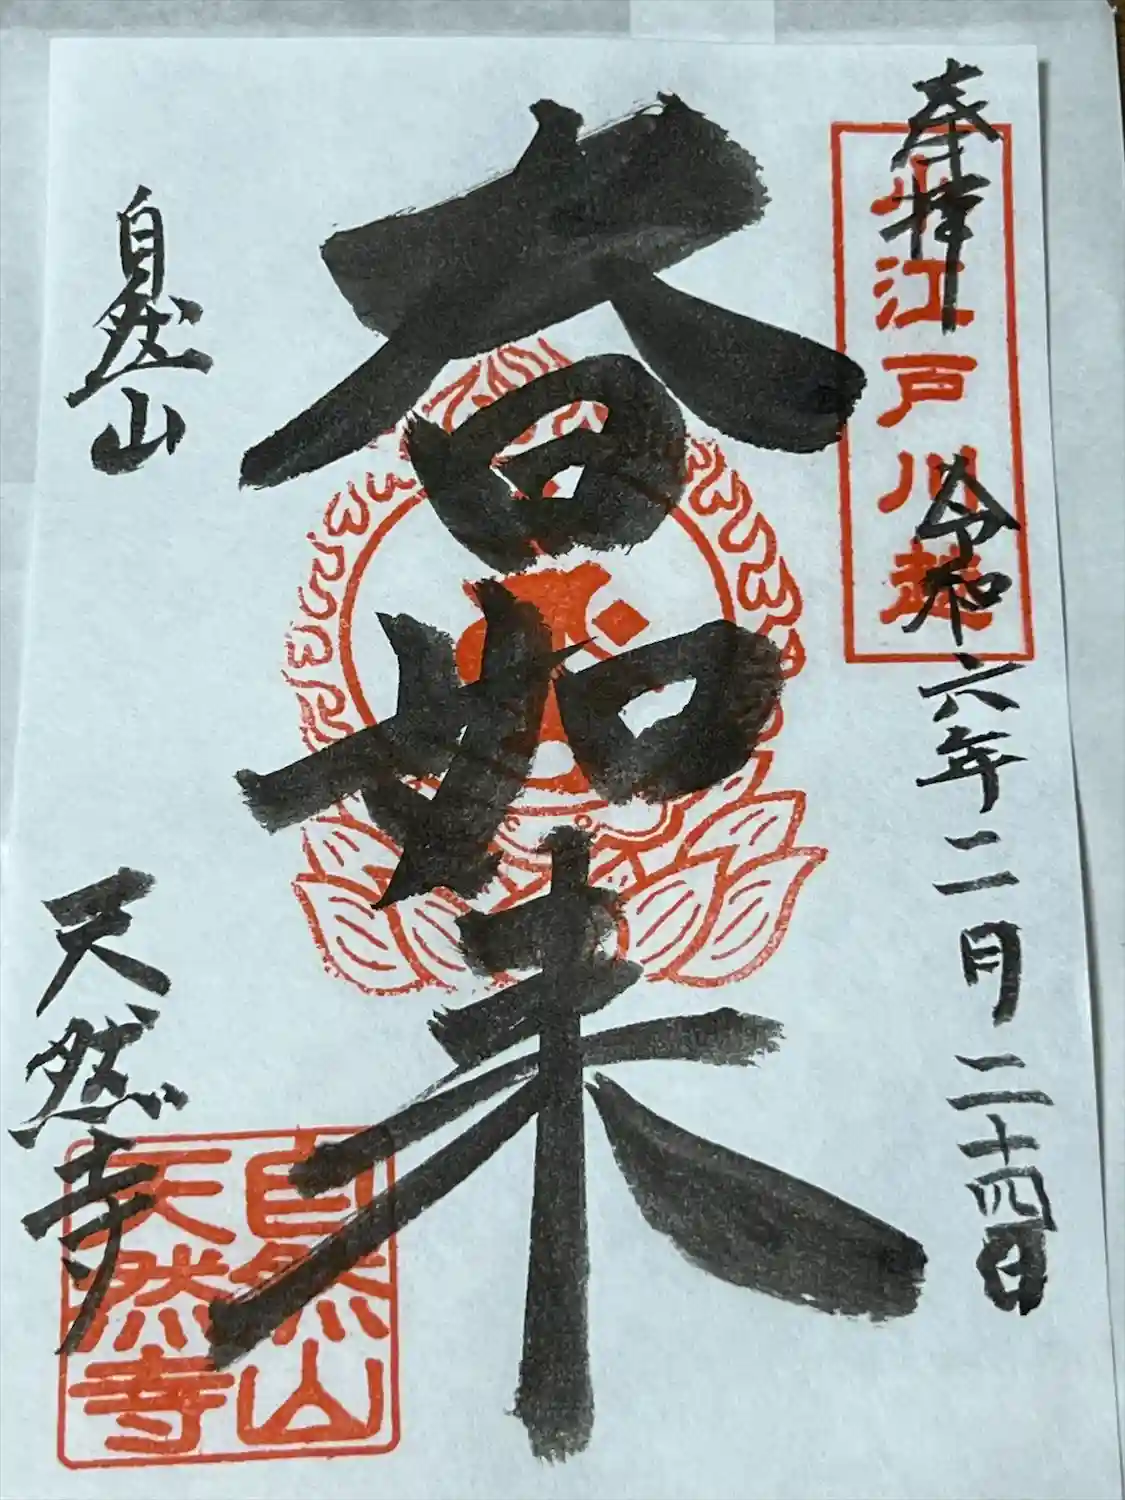 奉拝
令和六年二月二十四日
小江戸川越
大日如来
自然山
天然寺
自然山
天然寺